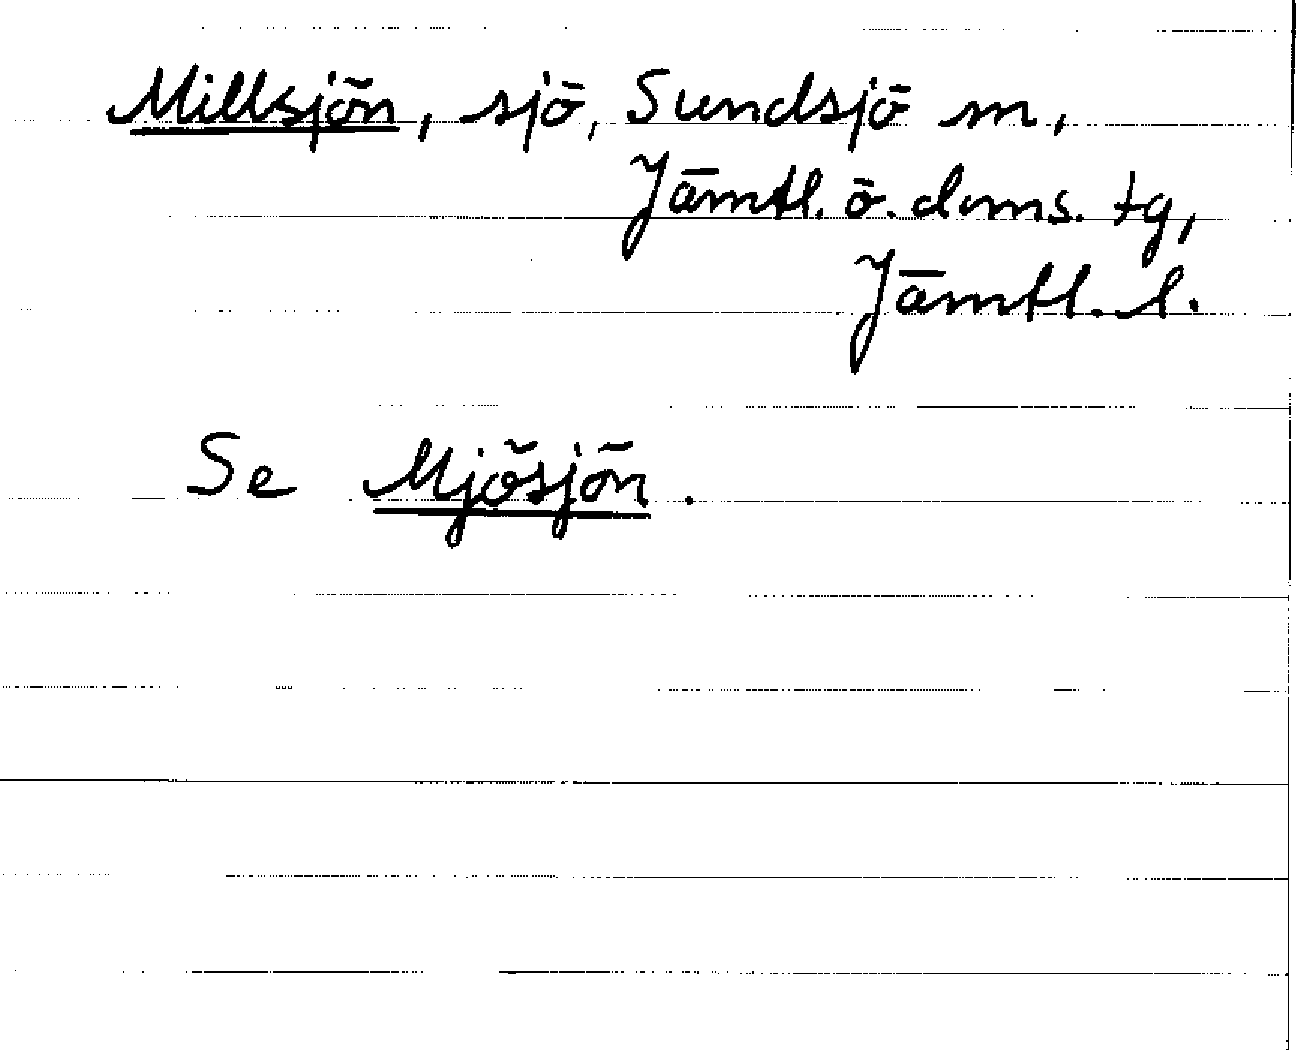 Millsjön, sjö, Sundsjö sn,
Jämtl. ö. doms. tg,
Jämtl. l.
Se Mjösjön.